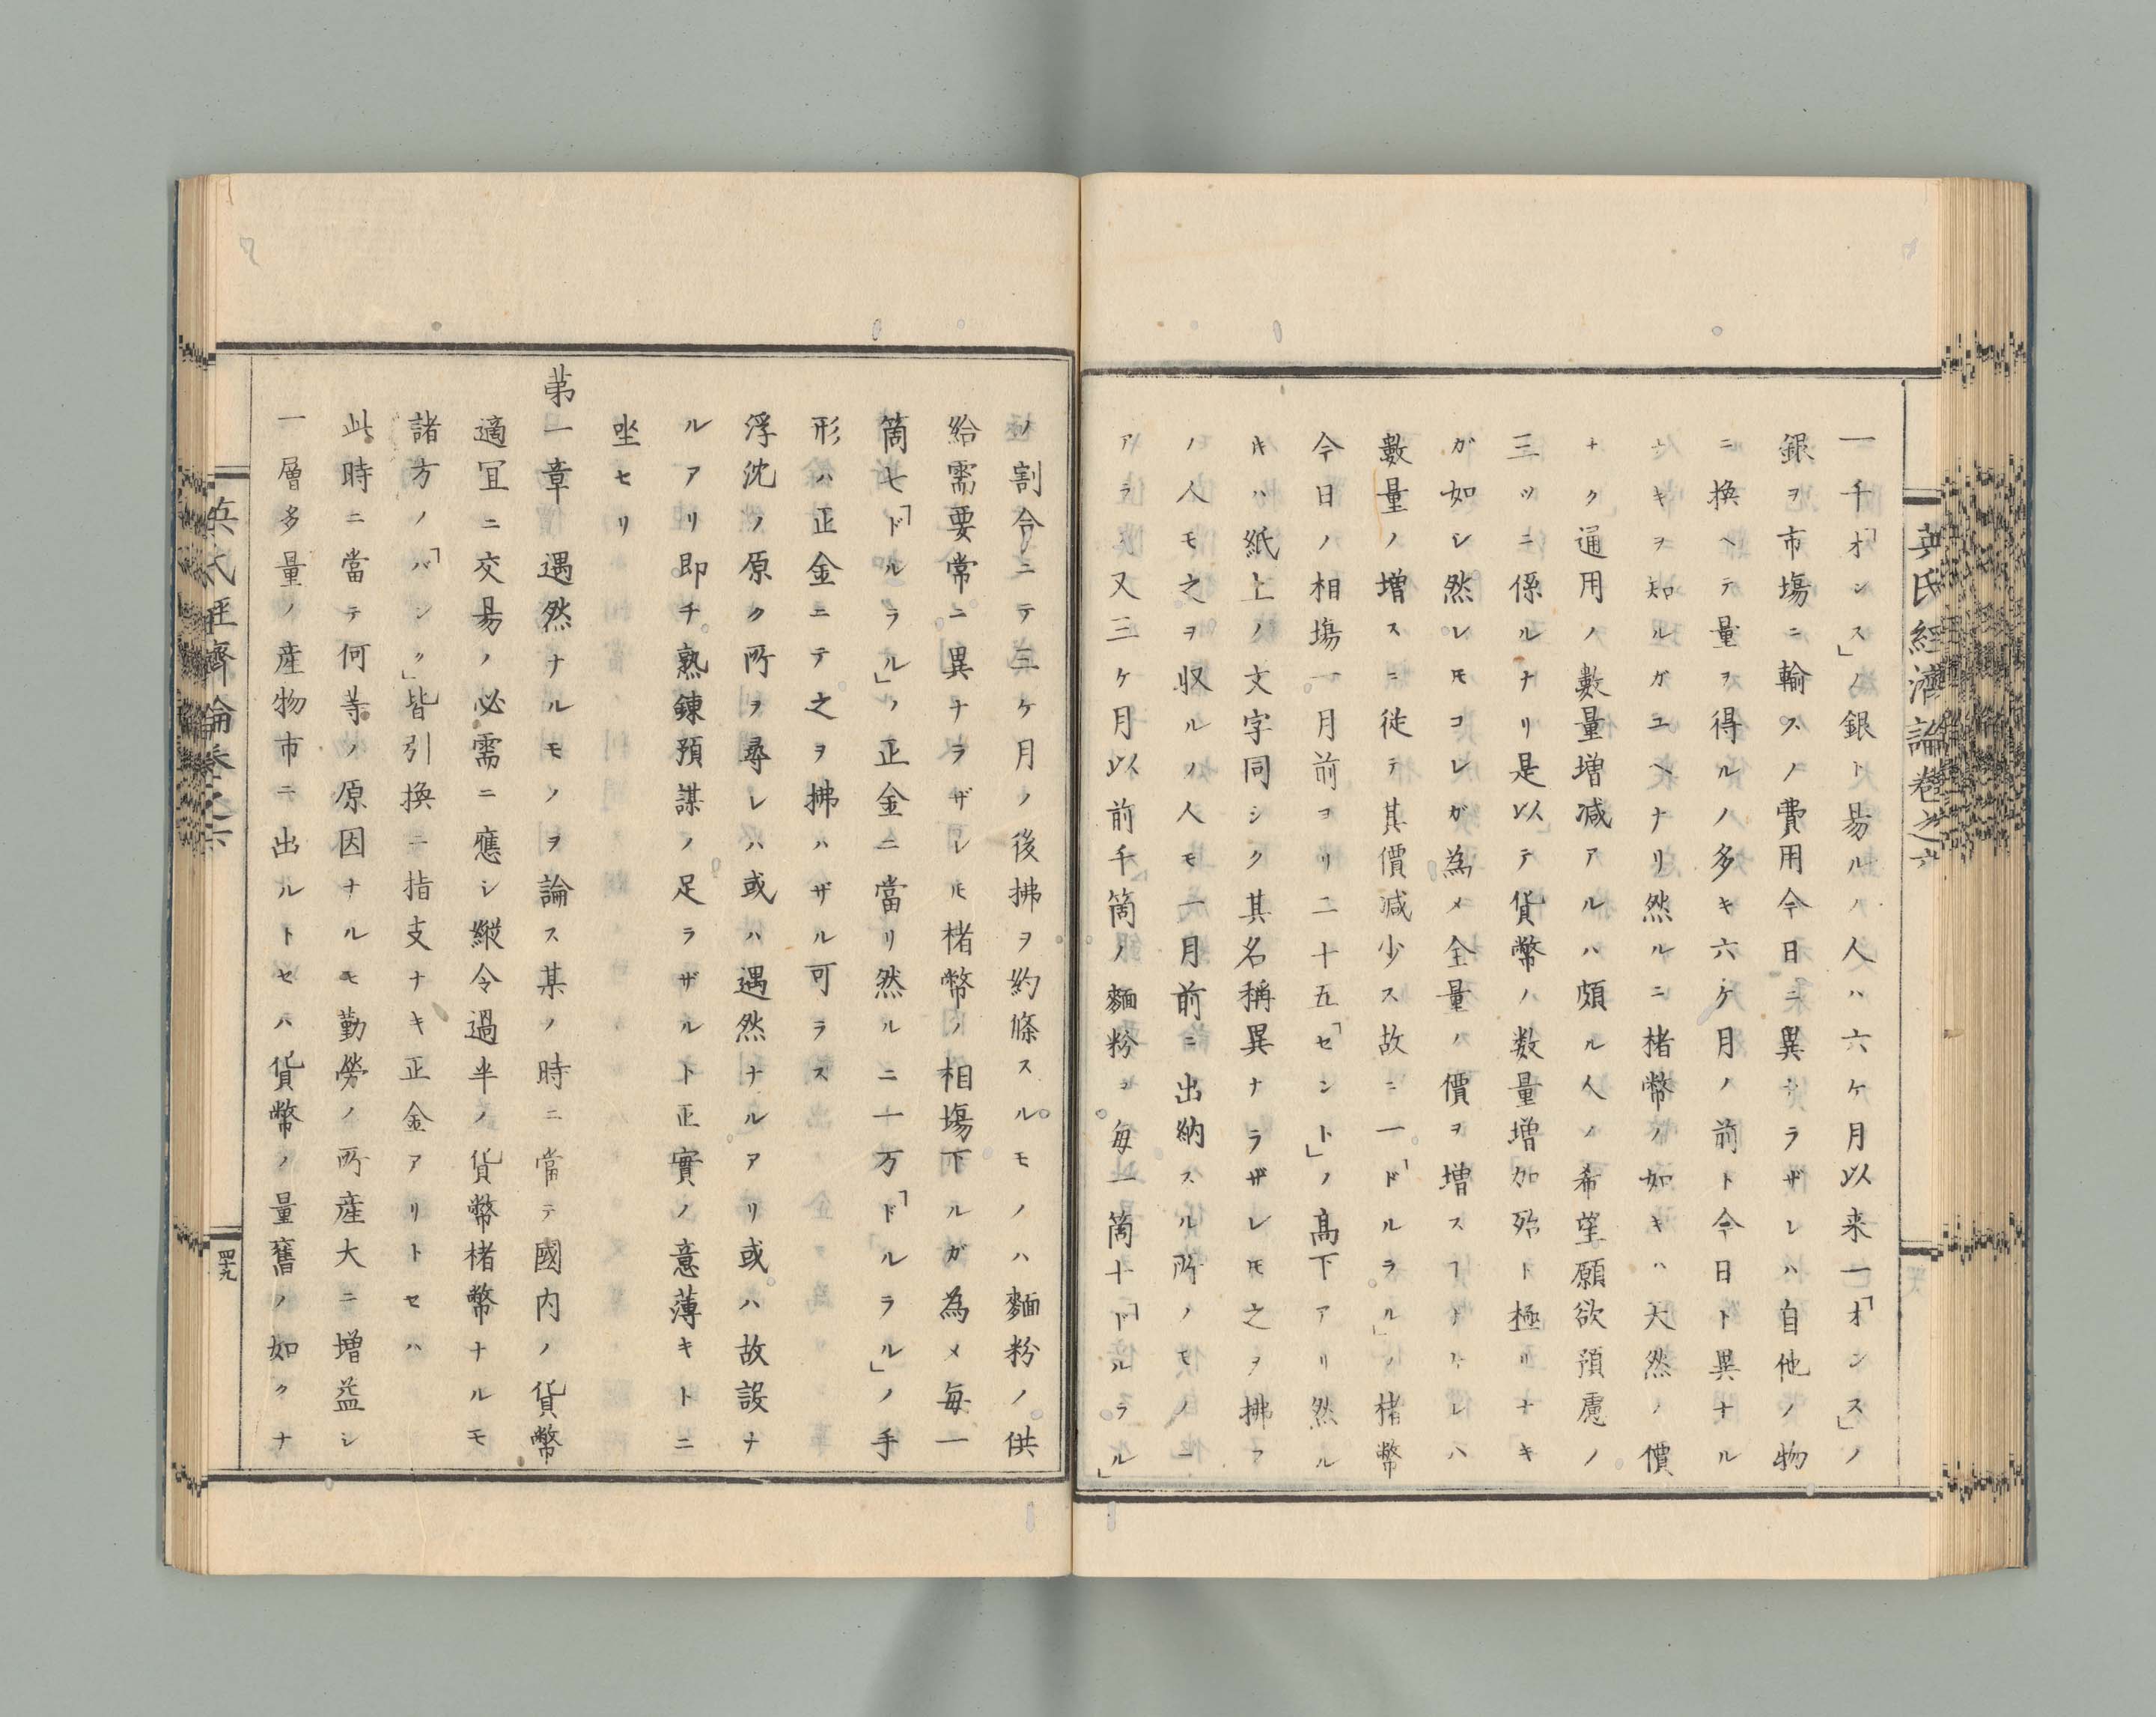 英氏經濟論卷之六
一千「オンス」ノ銀ト易ルノ人ハ六ケ月以来一「オンス」ノ
銀ヲ市塲ニ輸スノ費用今日ニ異ナラザレハ自他ノ物
ニ換ヘテ量ヲ得ルノ多キ六ケ月ノ前ト今日ト異ナル
ナキヲ知ルガユヘナリ然ルニ楮幣ノ如キハ天然ノ價
ナク通用ノ數量増減アルハ頗ル人ノ希望願欲預慮ノ
三ツニ係ルナリ是以テ貨幣ノ数量増加殆ト極リナキ
ガ如シ然レ𪜈コレガ為メ全量ノ價ヲ増スヿナケレハ
數量ノ増スニ従テ其價減少ス故ニ一「ドルラル」ノ楮幣
今日ノ相塲一月前ヨリ二十五「セント」ノ高下アリ然ル
𪜈ハ紙上ノ文字同シク其名稱異ナラザレ𪜈之ヲ拂フ
ノ人モ之ヲ収ルノ人モ一月前ニ出納スル所ノモノニ
アラス又三ケ月以前千箇ノ麵粉ヲ毎一箇十「ドルラル」
ノ割合ニテ三ケ月ノ後拂ヲ約條スルモノハ麵粉ノ供
給需要常ニ異ナラザレ𪜈楮幣ノ相塲下ルガ為メ毎一
箇七「ドルラル」ノ正金ニ當リ然ルニ一万「ドルラル」ノ手
形ハ正金ニテ之ヲ拂ハザル可ラス
浮沈ノ原ク所ヲ尋レハ或ハ遇然ナルアリ或ハ故設ナ
ルアリ即チ熟錬預謀ノ足ラザルト正實ノ意薄キトニ
坐セリ
第一章 遇然ナルモノヲ論ス某ノ時ニ當テ國内ノ貨幣
適冝ニ交易ノ必需ニ應シ縦令過半ノ貨幣楮幣ナルモ
諸方ノ「バンク」皆引換ニ指支ナキ正金アリトセハ
此時ニ當テ何等ノ原因ナルモ勤勞ノ所産大ニ増益シ
一層多量ノ産物市ニ出ルトセハ貨幣ノ量舊ノ如クナ
英氏經濟論卷之六
四十九